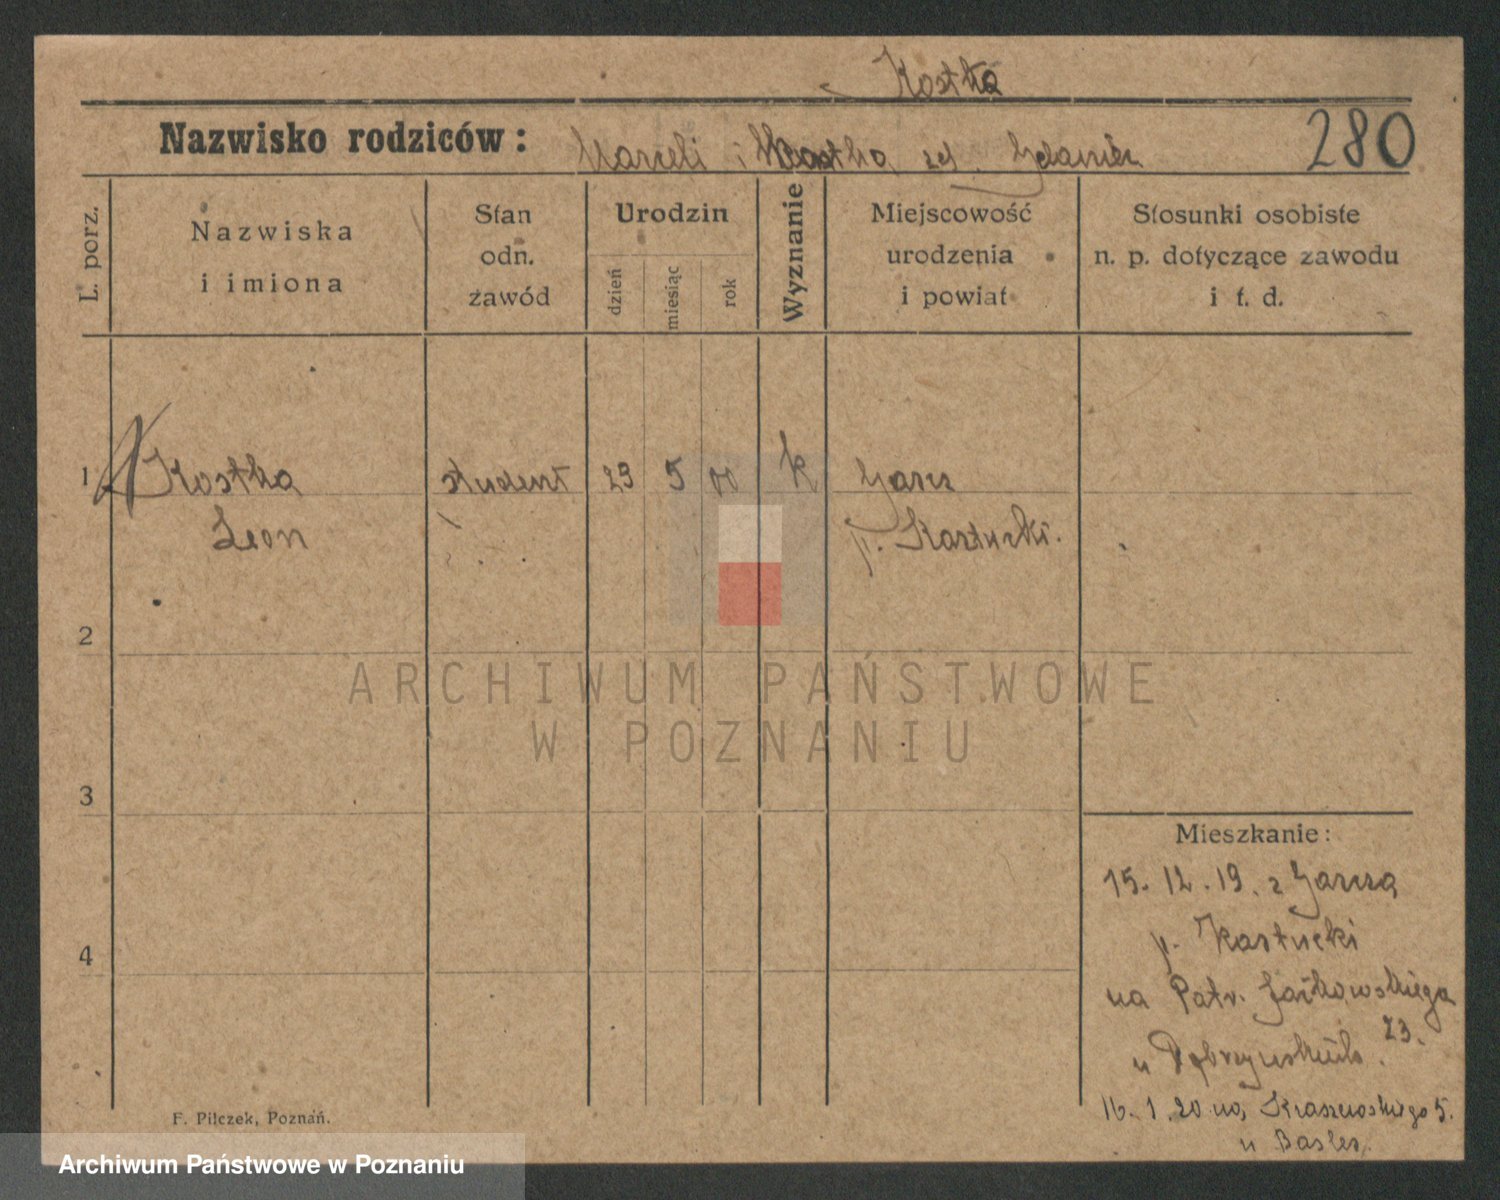 Kostka
Nazwisko rodziców: Marceli i Kostka
280
L. porz.
Nazwiska
i imiona
Stan
odn.
zawód
Urodzin
dzień
miesiąc
rok
Wyznanie
Miejscowość
urodzenia
i powiat
Stosunki osobiste
n. p. dotyczące zawodu
i t. d.
1 Kostka student 29 5 00 k Garcz
Leon p. Kartuski.
2
ARCHIWUM PAŃSTWOWE
W POZNANIU
3
Mieszkanie:
15. 12. 19. z Garcza
4
p. Kartucki
na Patr. Jackowskiego
23.
u
16. 1. 20 na Kraszewskiego 5.
u
F. Pilczek, Poznań.
Archiwum Państwowe w Poznaniu